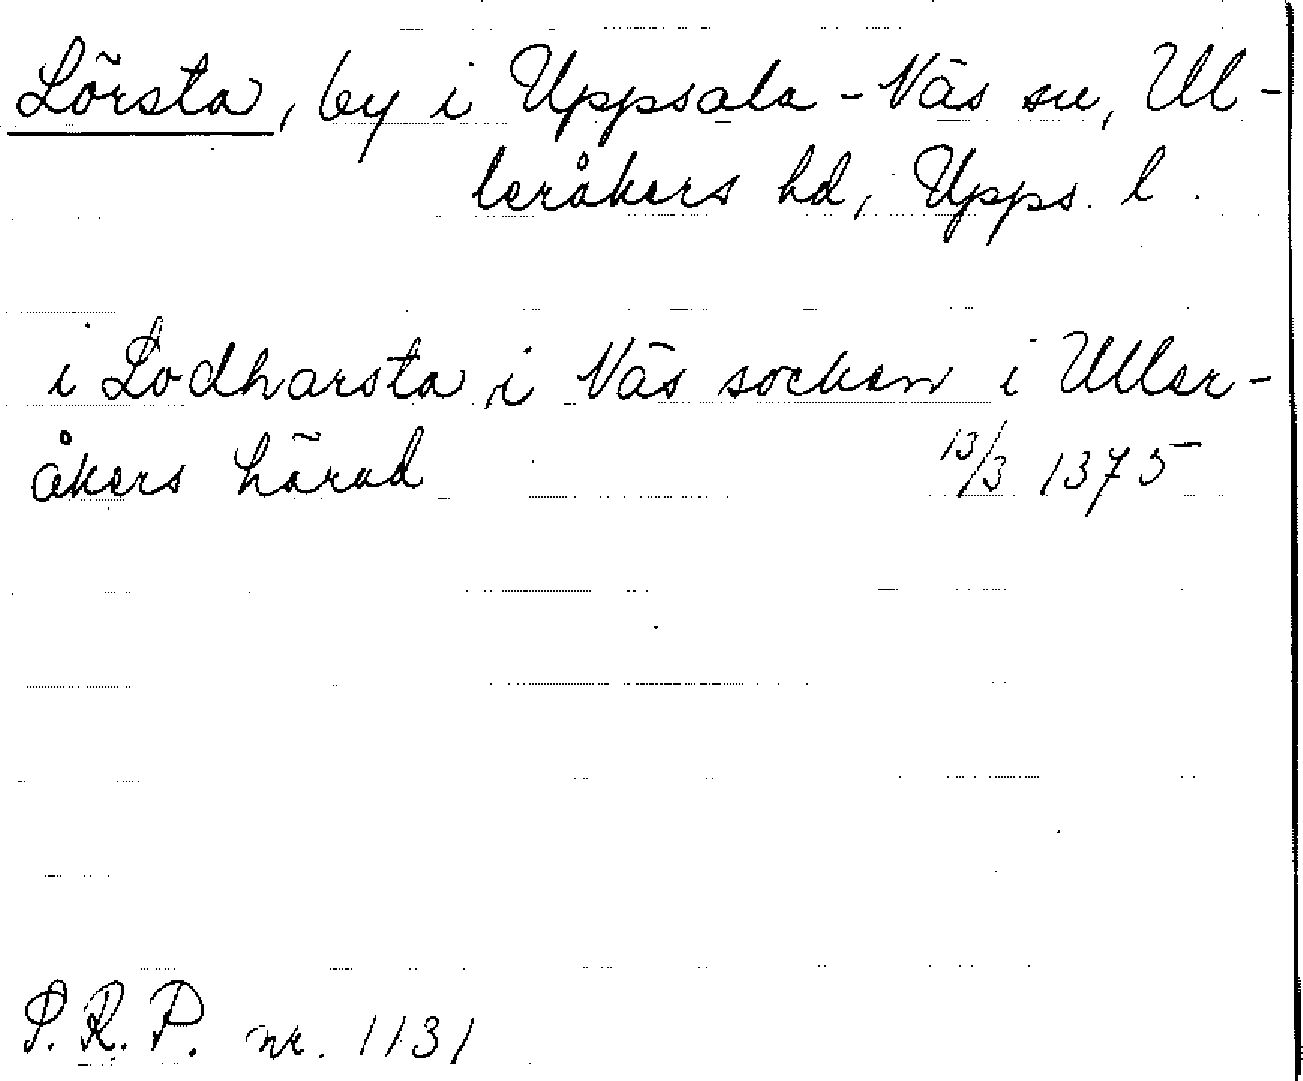 Lörsta, by i Uppsala-Näs sn, Ul-
leråkers hd, Upps. l.
i Lodharsta i Näs socken i Uller-
åkers härad 13/3 1375
S.R.P. nr. 1131